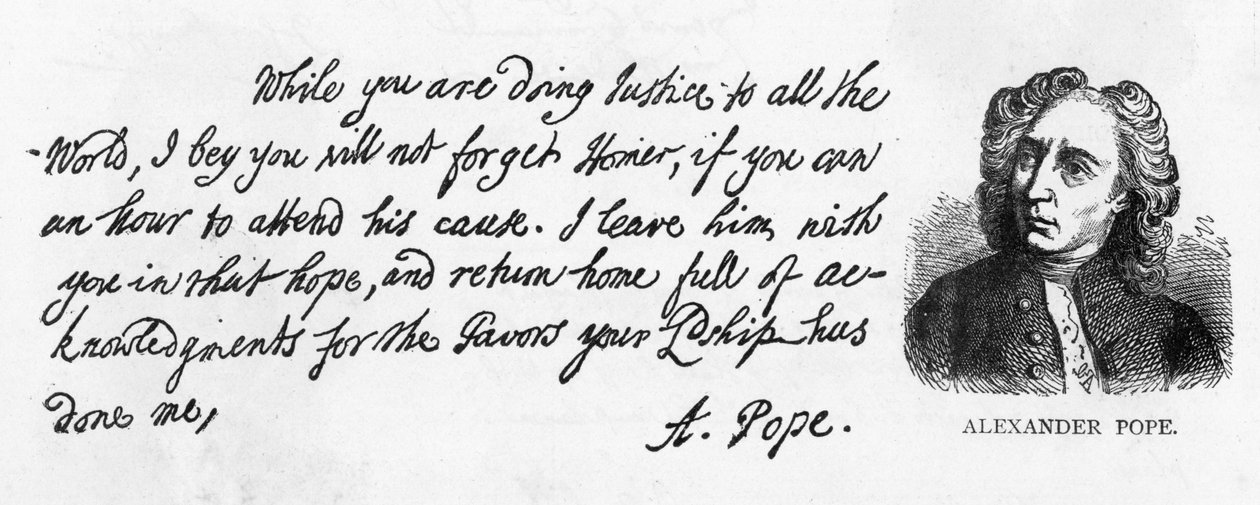 While you are doing Justice to all the
World, I beg you will not forget Homer, if you can
an hour to attend his cause. I leave him with
you in that hope, and return home full of ac-
knowledgments for the Favors your Ldship has
done me,
A. Pope.
ALEXANDER POPE.